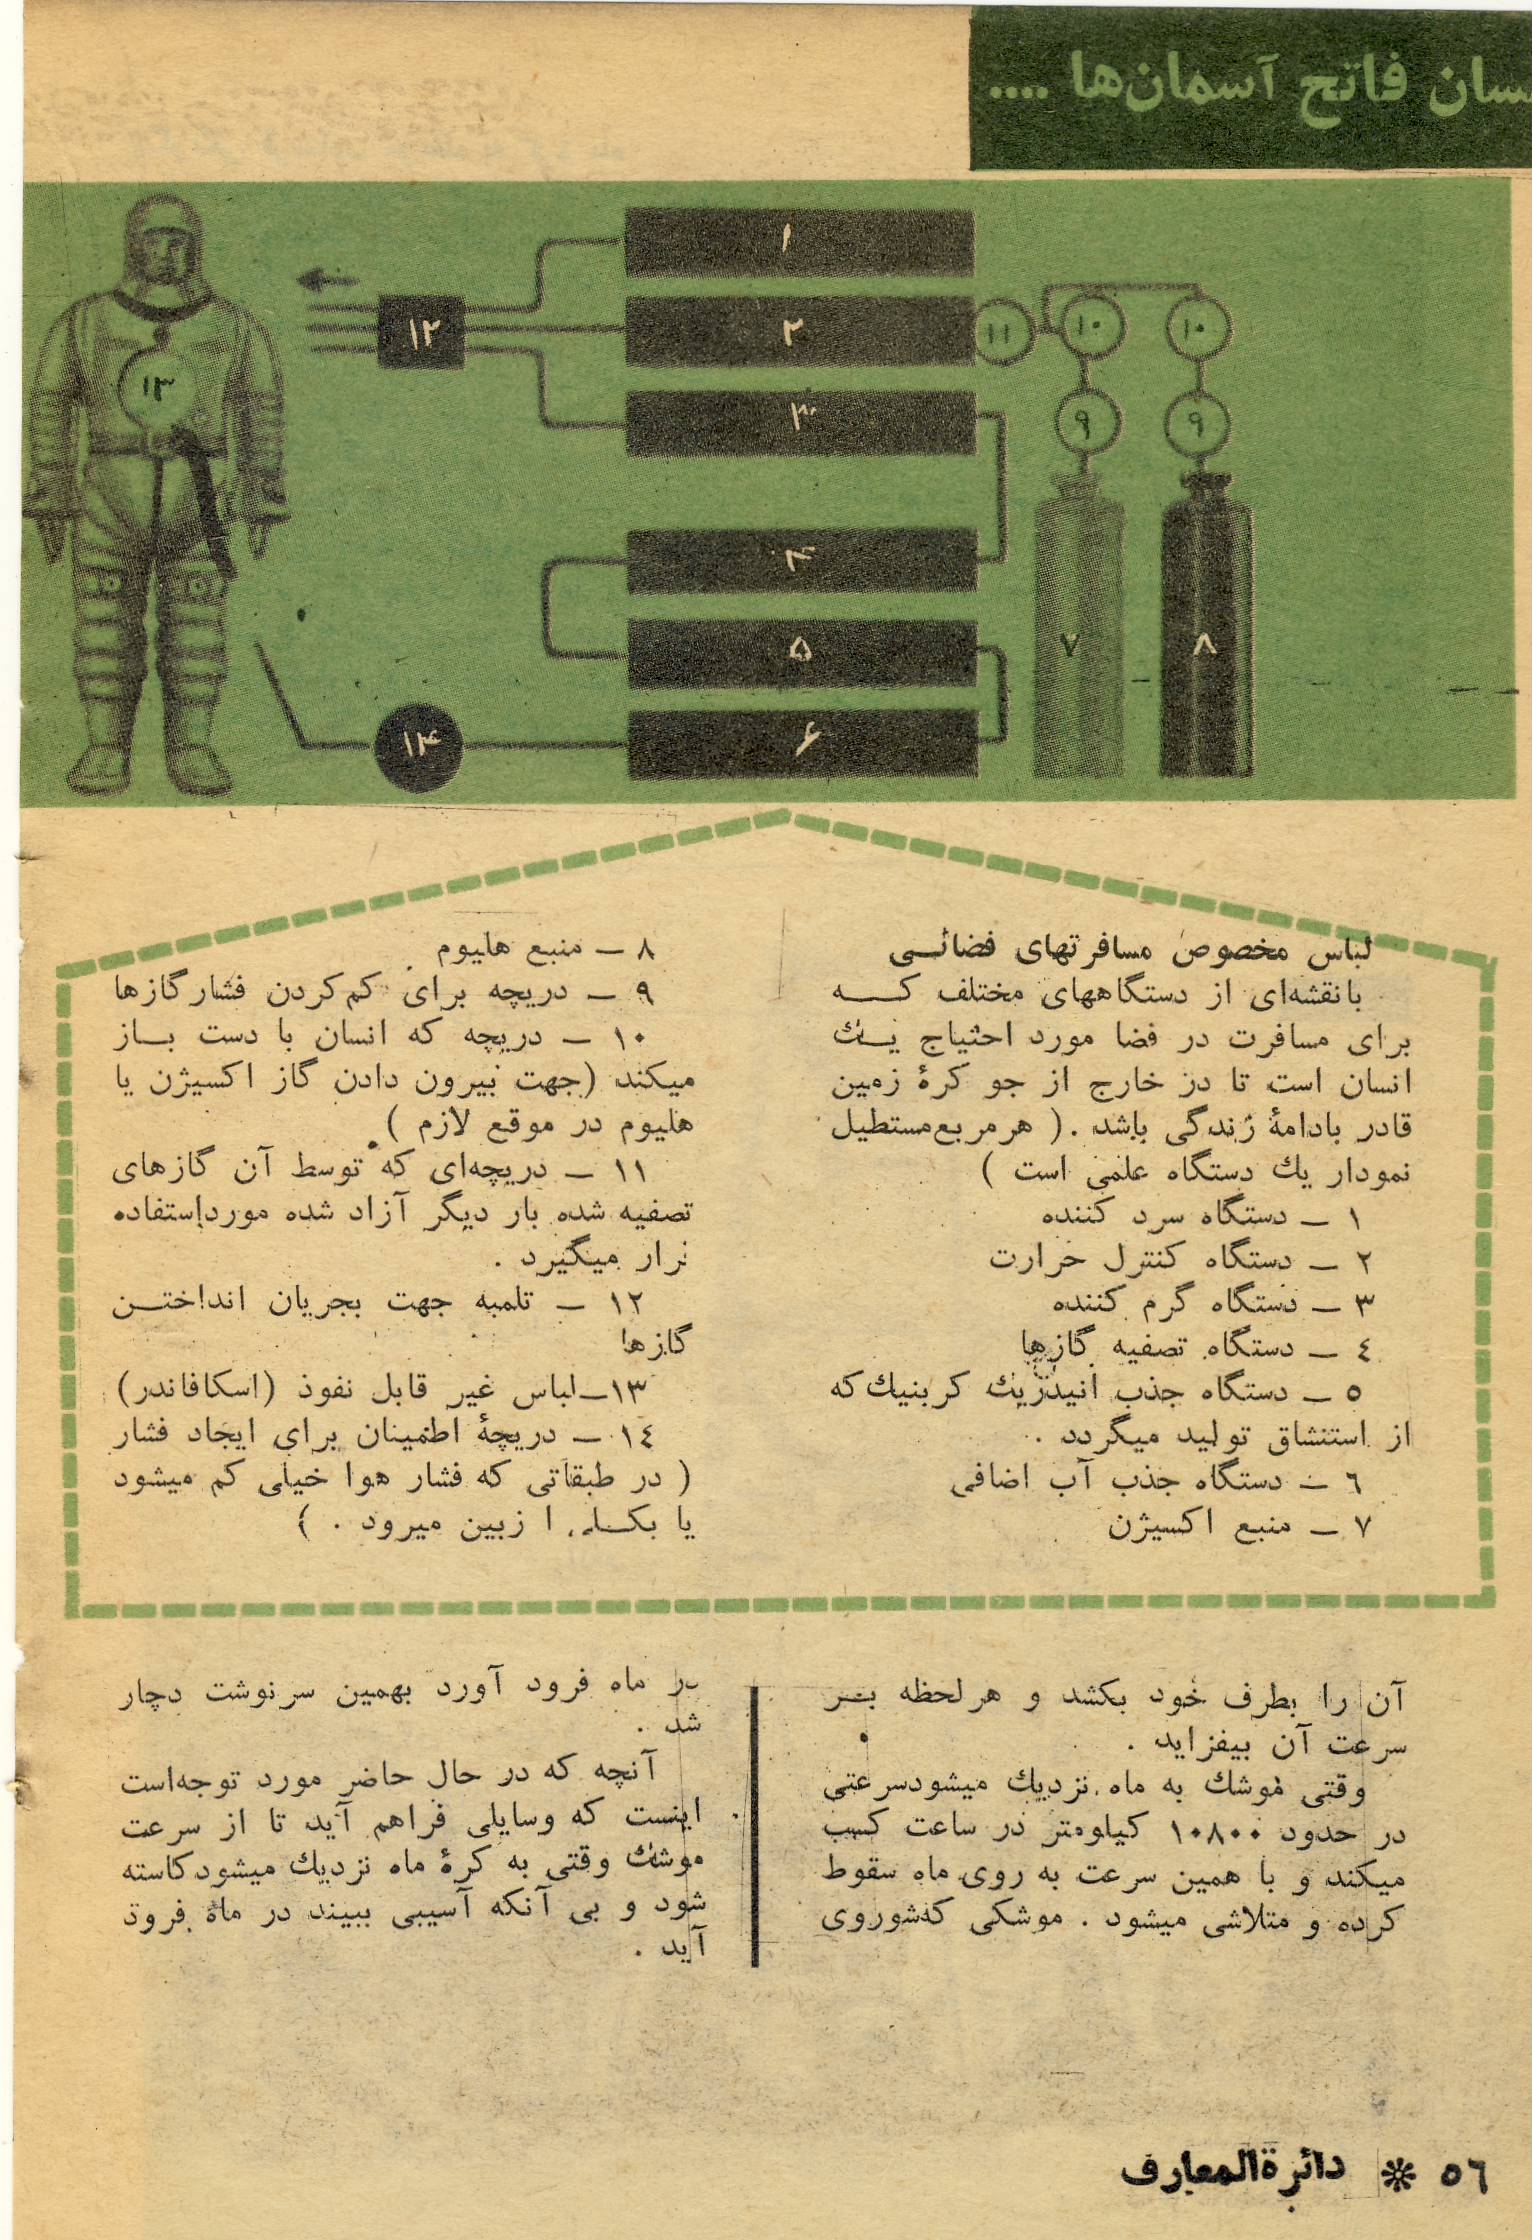 سان فاتح آسمان‌ها ....
۱
۲
۳
۴
۵
۶
۷
۸
۹
۹
۱۰
۱۰
۱۱
۱۲
۱۳
۱۴
لباس مخصوص مسافرتهای فضائی
بانقشه‌ای از دستگاههای مختلف که
برای مسافرت در فضا مورد احتیاج یك
انسان است تا در خارج از جو کرهٔ زمین
قادر بادامهٔ زندگی باشد . ( هرمربع‌مستطیل
نمودار یك دستگاه علمی است )
۱ ـ دستگاه سرد کننده
۲ ـ دستگاه کنترل حرارت
۳ ـ دستگاه گرم کننده
٤ ـ دستگاه تصفیه گازها
٥ ـ دستگاه جذب انیدریك کربنیك که
از استنشاق تولید میگردد .
٦ ـ دستگاه جذب آب اضافی
۷ ـ منبع اکسیژن
۸ ـ منبع هلیوم
۹ ـ دریچه برای کم‌کردن فشار گازها
۱۰ ـ دریچه که انسان با دست باز
میکند (جهت بیرون دادن گاز اکسیژن یا
هلیوم در موقع لازم )
۱۱ ـ دریچه‌ای که توسط آن گازهای
تصفیه شده بار دیگر آزاد شده مورداستفاده
قرار میگیرد .
۱۲ ـ تلمبه جهت بجریان انداختن
گازها
۱۳ـ لباس غیر قابل نفوذ (اسکافاندر)
۱٤ ـ دریچهٔ اطمینان برای ایجاد فشار
( در طبقاتی که فشار هوا خیلی کم میشود
یا ازبین میرود . )
آن را بطرف خود بکشد و هرلحظه بر
سرعت آن بیفزاید .
وقتی موشك به ماه نزدیك میشودسرعتی
در حدود ۱۰۸۰۰ کیلومتر در ساعت کسب
میکند و با همین سرعت به روی ماه سقوط
کرده و متلاشی میشود . موشکی که‌شوروی
در ماه فرود آورد بهمین سرنوشت دچار
شد .
آنچه که در حال حاضر مورد توجه‌است
اینست که وسایلی فراهم آید تا از سرعت
موشك وقتی به کرهٔ ماه نزدیك میشود کاسته
شود و بی آنکه آسیبی ببیند در ماه فرود
آید .
٥٦ ❊ دائرةالمعارف